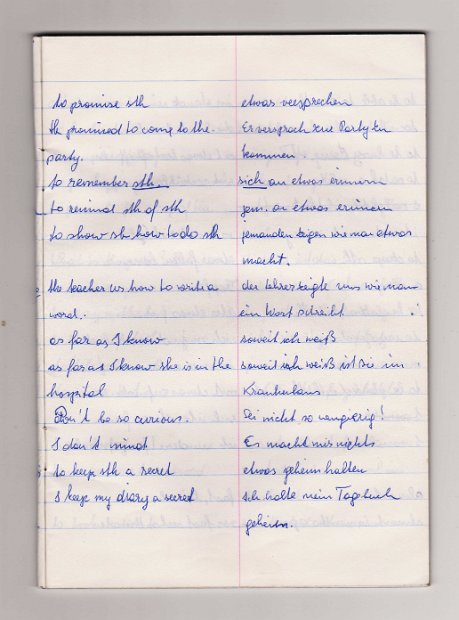 to promise sth etwas versprechen
He promised to come to the Er versprach zur Party zu
party. kommen
to remember sth. sich an etwas erinnern
to remind sth of sth jem. an etwas erinnern
to show sb how to do sth jemanden zeigen wie man etwas
macht.
the teacher us how to write a der Lehrer zeigte uns wie man
word. ein Wort schreibt
as far as I know soweit ich weiß
as far as I know she is in the soweit ich weiß ist sie im
hospital Krankenhaus
Don't be so curious. Sei nicht so neugierig!
I don't mind Es macht mir nights
to keep sth a secret etwas geheim halten
I keep my diary a secret Ich halte mein Tagebuch
geheim.